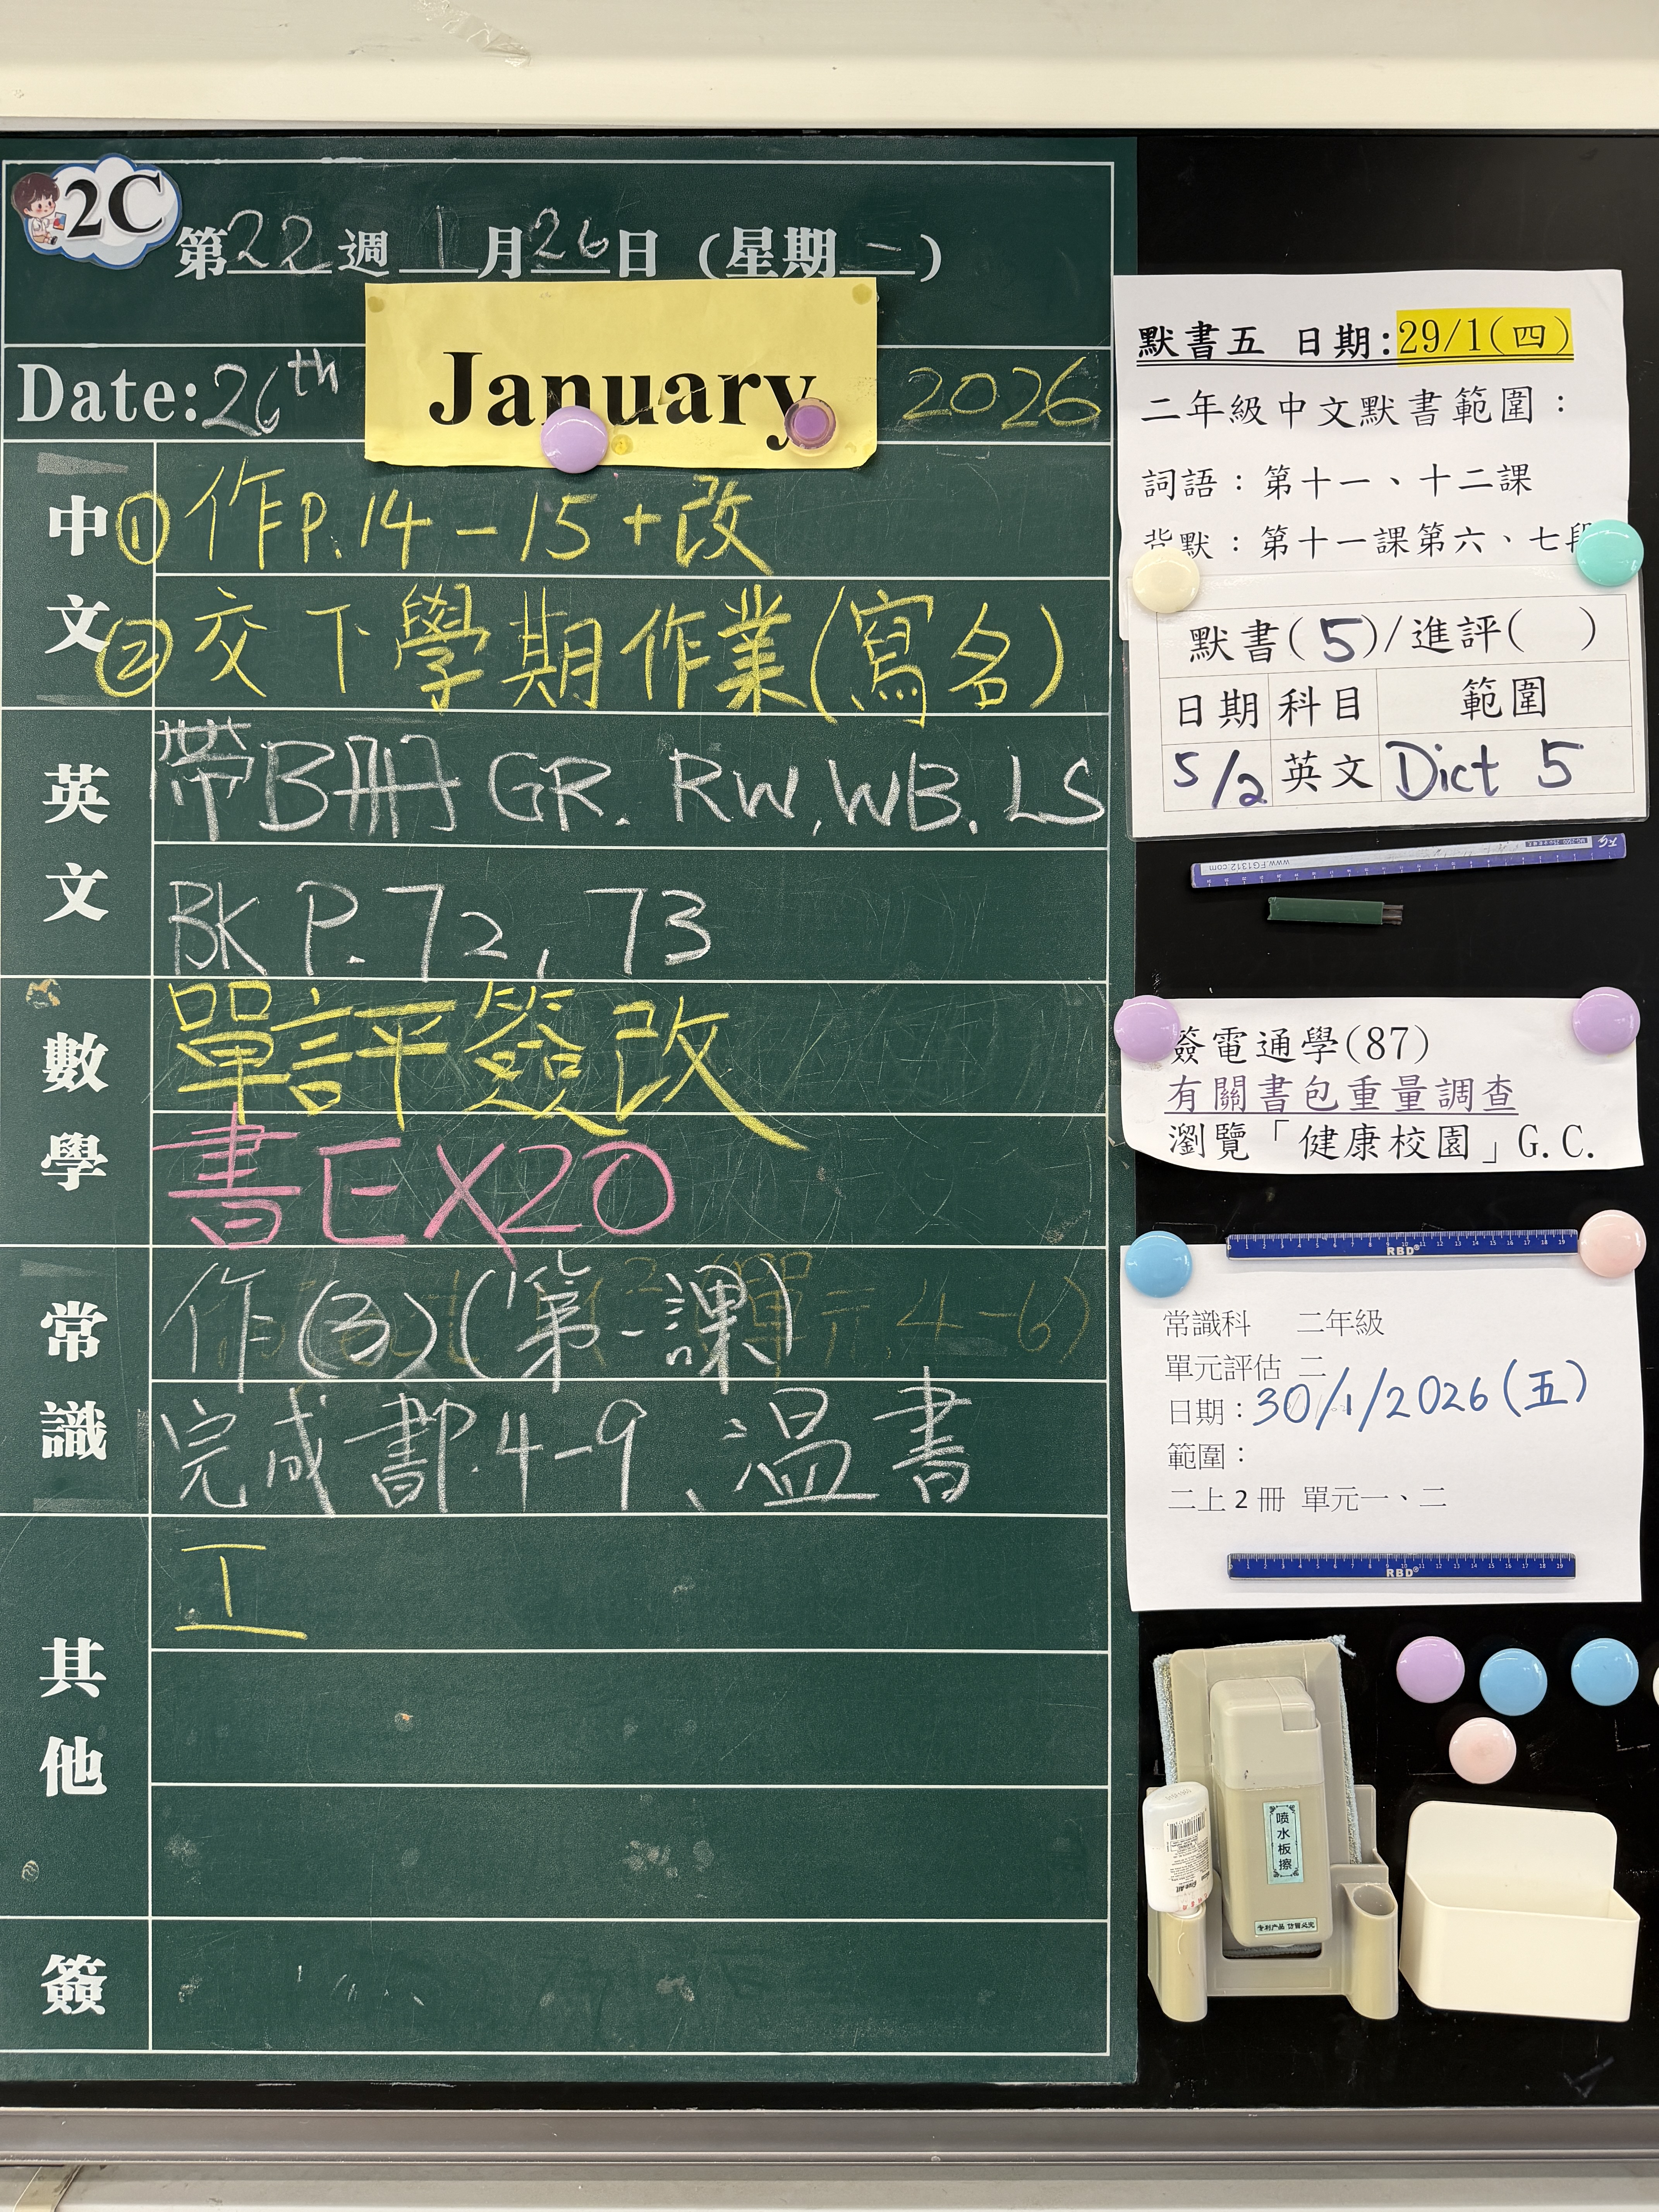 2C
第22週 1月26日 (星期一)
Date: 26th January 2026
中文
① 作P.14-15+改
② 交下學期作業(寫名)
英文
帶B冊 GR. RW, WB. LS
BK P.72, 73
數學
單評簽改
書EX20
常識
作(3)(第一課)
完成書P.4-9、溫書
其他
工
簽
默書五 日期:29/1(四)
二年級中文默書範圍：
詞語：第十一、十二課
背默：第十一課第六、七段
默書(5)/進評( )
日期 科目 範圍
5/2 英文 Dict 5
www.FG1312.com
簽電通學(87)
有關書包重量調查
瀏覽「健康校園」G.C.
RBD®
常識科 二年級
單元評估 二
日期：30/1/2026(五)
範圍：
二上2冊 單元一、二
RBD®
喷水板擦
专利产品 仿冒必究